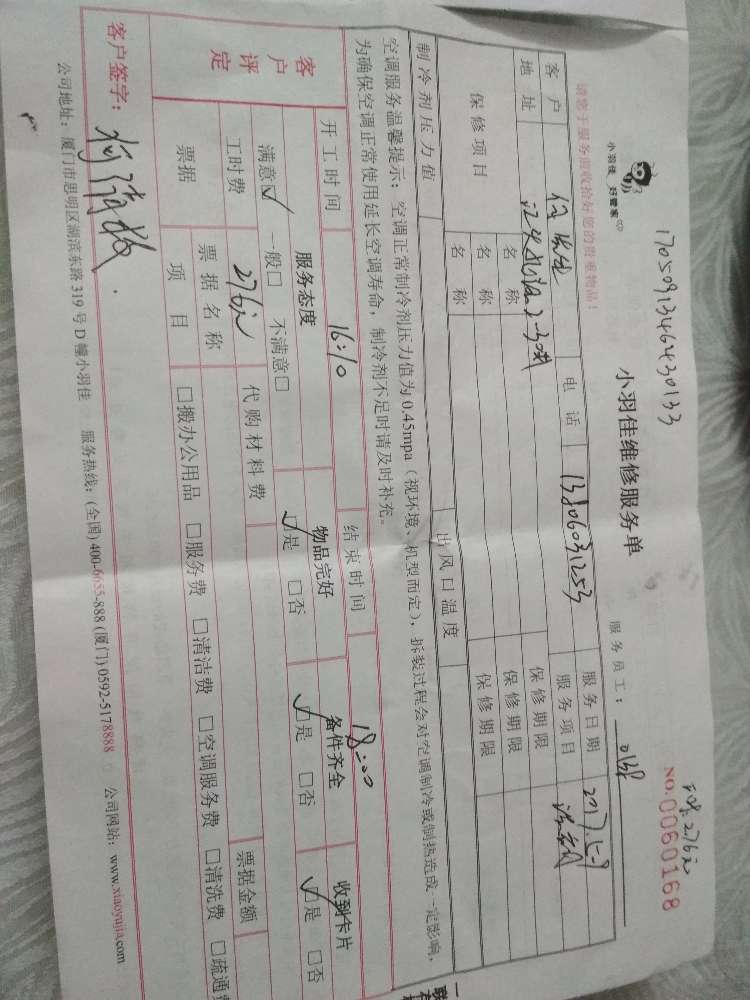 1705091346430133
小羽佳 好管家
小羽佳维修服务单
NO.0060168
请您于服务前收拾好您的贵重物品！
服务员工：
客户
电话
13806031253
服务日期
2017.5.9
地址
服务项目
保修项目
名称
保修期限
名称
保修期限
名称
保修期限
制冷剂压力值
出风口温度
空调服务温馨提示：空调正常制冷剂压力值为0.45mpa（视环境、机型而定），拆装过程会对空调制冷或制热造成一定影响，
为确保空调正常使用延长空调寿命，制冷剂不足时请及时补充。
开工时间
16:10
结束时间
18:00
客户评定
服务态度
物品完好
备件齐全
收到卡片
满意☑ 一般□ 不满意□
☑是 □否
☑是 □否
☑是 □否
工时费
276元
代购材料费
票据
票据名称
票据金额
项目
□搬办公用品 □服务费 □清洁费 □空调服务费 □清洗费 □疏通
客户签字：
公司地址：厦门市思明区湖滨东路319号D幢小羽佳 服务热线：(全国)400-6655-888 (厦门)0592-5178888 公司网站：www.xiaoyujia.com